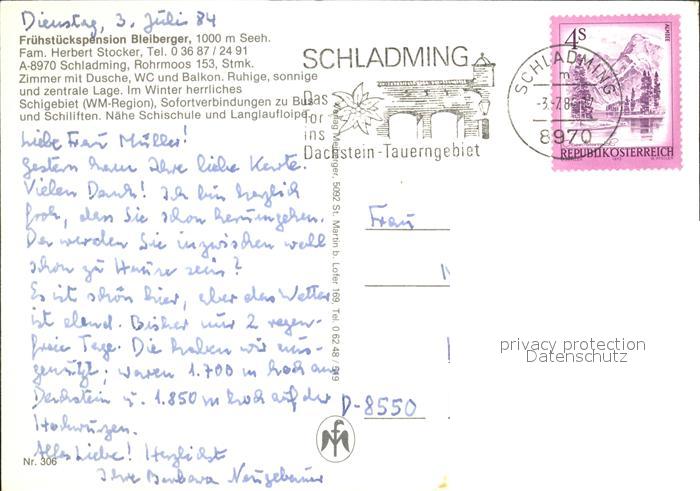 Dienstag, 3. Juli 84
Frühstückspension Bleiberger, 1000 m Seeh.
Fam. Herbert Stocker, Tel. 0 36 87 / 24 91
A-8970 Schladming, Rohrmoos 153, Stmk.
Zimmer mit Dusche, WC und Balkon. Ruhige, sonnige
und zentrale Lage. Im Winter herrliches
Schigebiet (WM-Region), Sofortverbindungen zu Bus
und Schiliften. Nähe Schischule und Langlaufloipe
Liebe Frau Müller!
Gestern kam Ihre liebe Karte.
Vielen Dank! Ich bin herzlich
froh, dass Sie schon herumgehen.
Da werden Sie inzwischen wohl
schon zu Hause sein?
Es ist schön hier, aber das Wetter
ist elend. Bisher nur 2 regen-
freie Tage. Die haben wir aus-
genützt; waren 1.700 m hoch am
Dachstein u. 1.850 m hoch auf der
Hochwurzen.
Alles Liebe! Herzlichst
Ihre Barbara Neugebauer
Nr. 306
SCHLADMING
Das
Tor
ins
Dachstein-Tauerngebiet
SCHLADMING
-3.-7.8
8970
4S
ALMSEE
REPUBLIK ÖSTERREICH
5092 St. Martin b. Lofer 169, Tel. 0 62 48 /
Frau
D-8550
privacy protection
Datenschutz